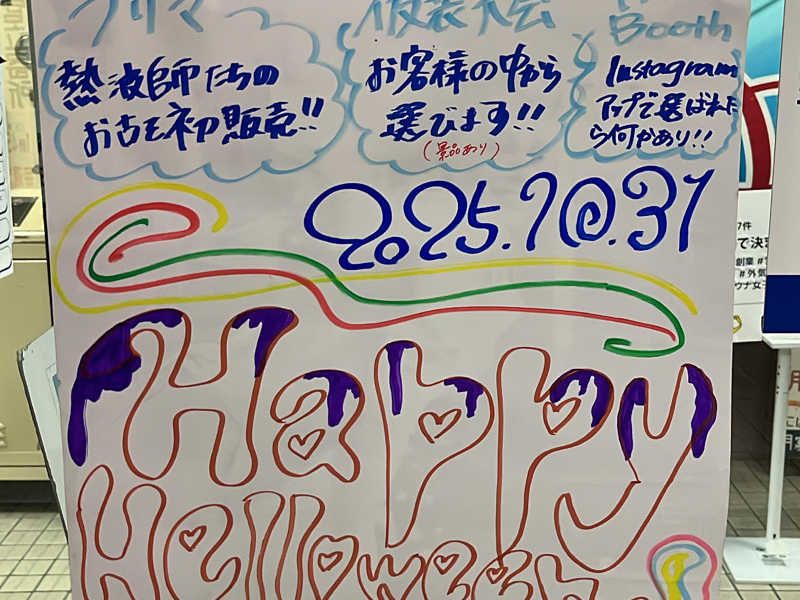 フリマ
熱波師たちの
お古を初販売!!
仮装大会
お客様の中から
選びます!!
(景品あり)
Booth
Instagram
アップで選ばれた
ら何かあり!!
2025.10.31
Happy
Helloween
7件
で決
創業